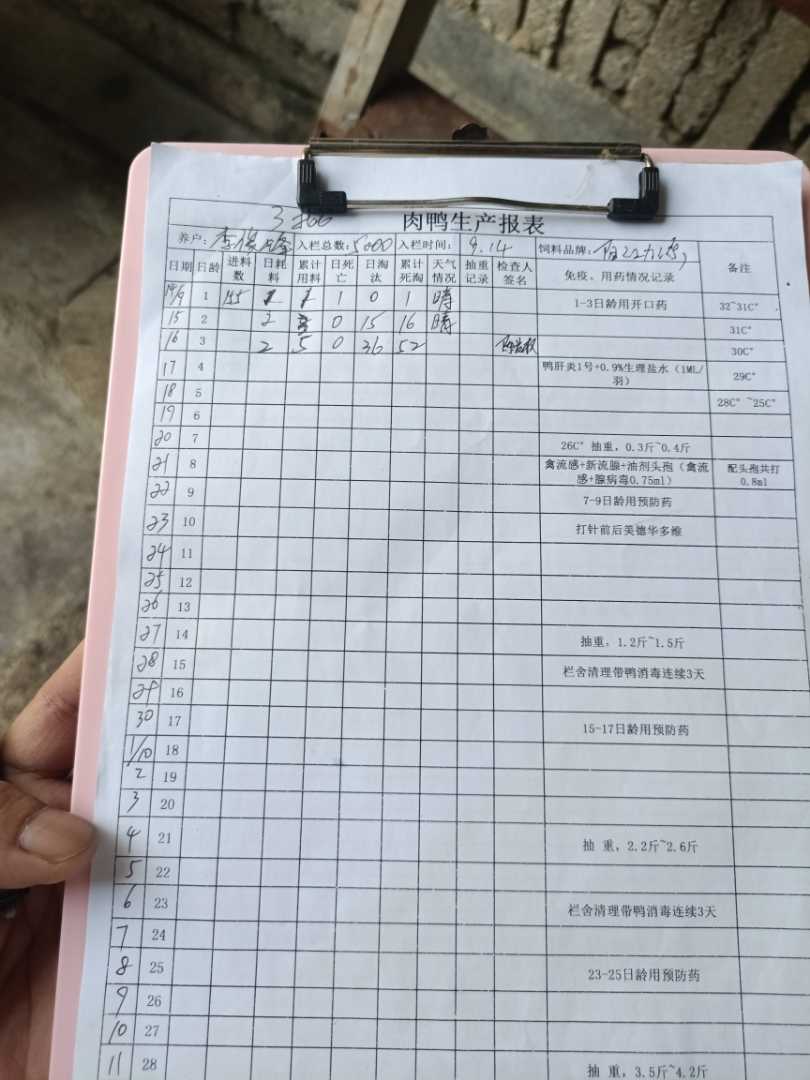 肉鸭生产报表
养户: 李 入栏总数: 5000 入栏时间: 9.14 饲料品牌: 备注
日期 日龄 进料数 日耗料 累计用料 日死亡 日淘汰 累计死淘 天气情况 抽重记录 检查人签名 免疫、用药情况记录
14/9 1 1 1 0 1 晴 1-3日龄用开口药 32~31C°
15 2 2 3 0 15 16 晴 31C°
16 3 2 5 0 36 52 30C°
17 4 鸭肝炎1号+0.9%生理盐水（1ML/羽） 29C°
18 5 28C° ~25C°
19 6
20 7 26C° 抽重，0.3斤~0.4斤
21 8 禽流感+新流腺+油剂头孢（禽流感+腺病毒0.75ml） 配头孢共打0.8ml
22 9 7-9日龄用预防药
23 10 打针前后美德华多维
24 11
25 12
26 13
27 14 抽重，1.2斤~1.5斤
28 15 栏舍清理带鸭消毒连续3天
29 16
30 17 15-17日龄用预防药
1/10 18
2 19
3 20
4 21 抽 重，2.2斤~2.6斤
5 22
6 23 栏舍清理带鸭消毒连续3天
7 24
8 25 23-25日龄用预防药
9 26
10 27
11 28 抽 重，3.5斤~4.2斤